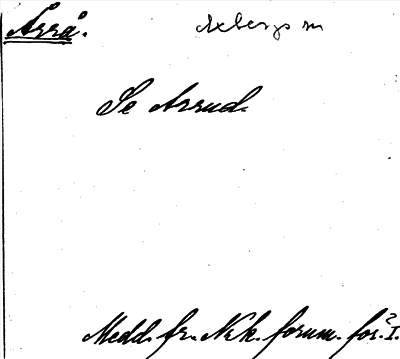 Arrå. Axbergs sn
Se Arrud.
Medd. fr. Nrk. fornm. för. I.